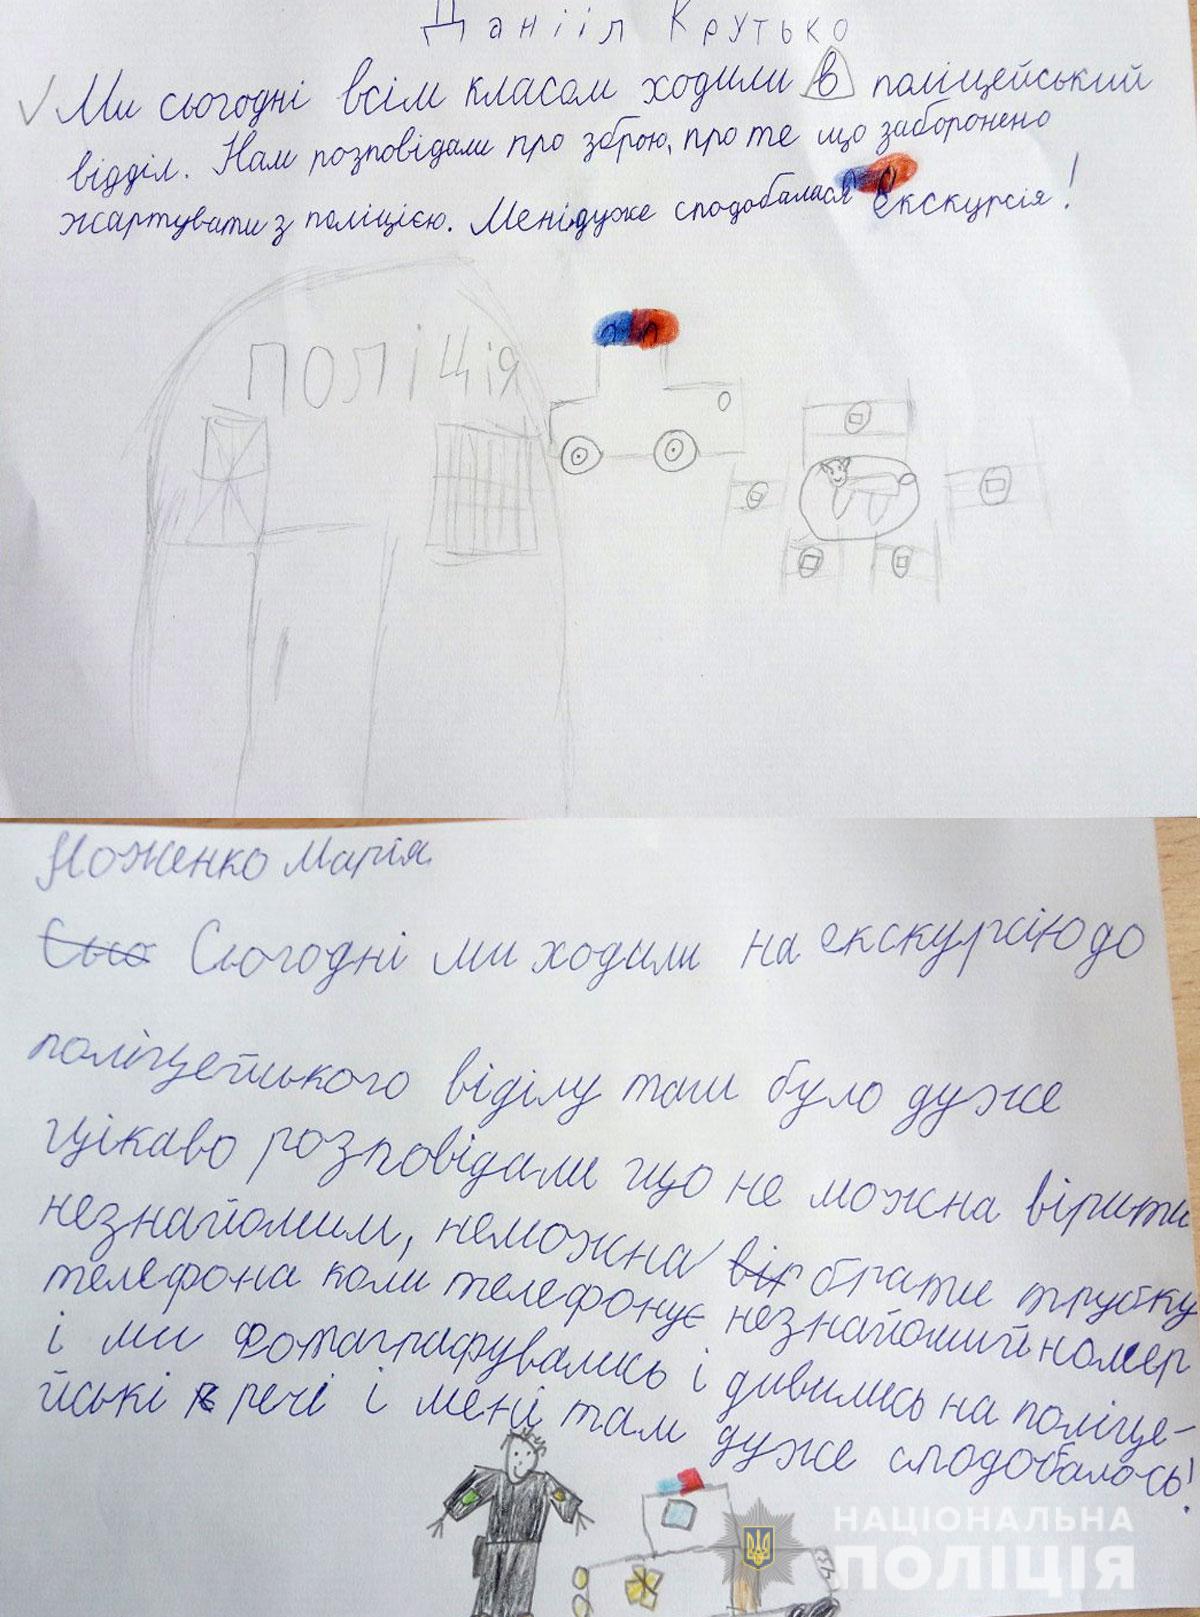 Данііл Крутько
Ми сьогодні всім класом ходили в поліцейський
відділ. Нам розповідали про зброю, про те що заборонено
жартувати з поліцією. Мені дуже сподобалася екскурсія!
ПОЛІЦІЯ
Ноженко Марія
Сьо Сьогодні ми ходили на екскурсію до
поліцейського віділу там було дуже
цікаво розповідали що не можна вірити
незнайомим, неможна вір брати трубку
телефона коли телефонує незнайомий номер
і ми фотаграфувались і дивились на поліце-
йські речі і мені там дуже сподобалось!
НАЦІОНАЛЬНА
ПОЛІЦІЯ